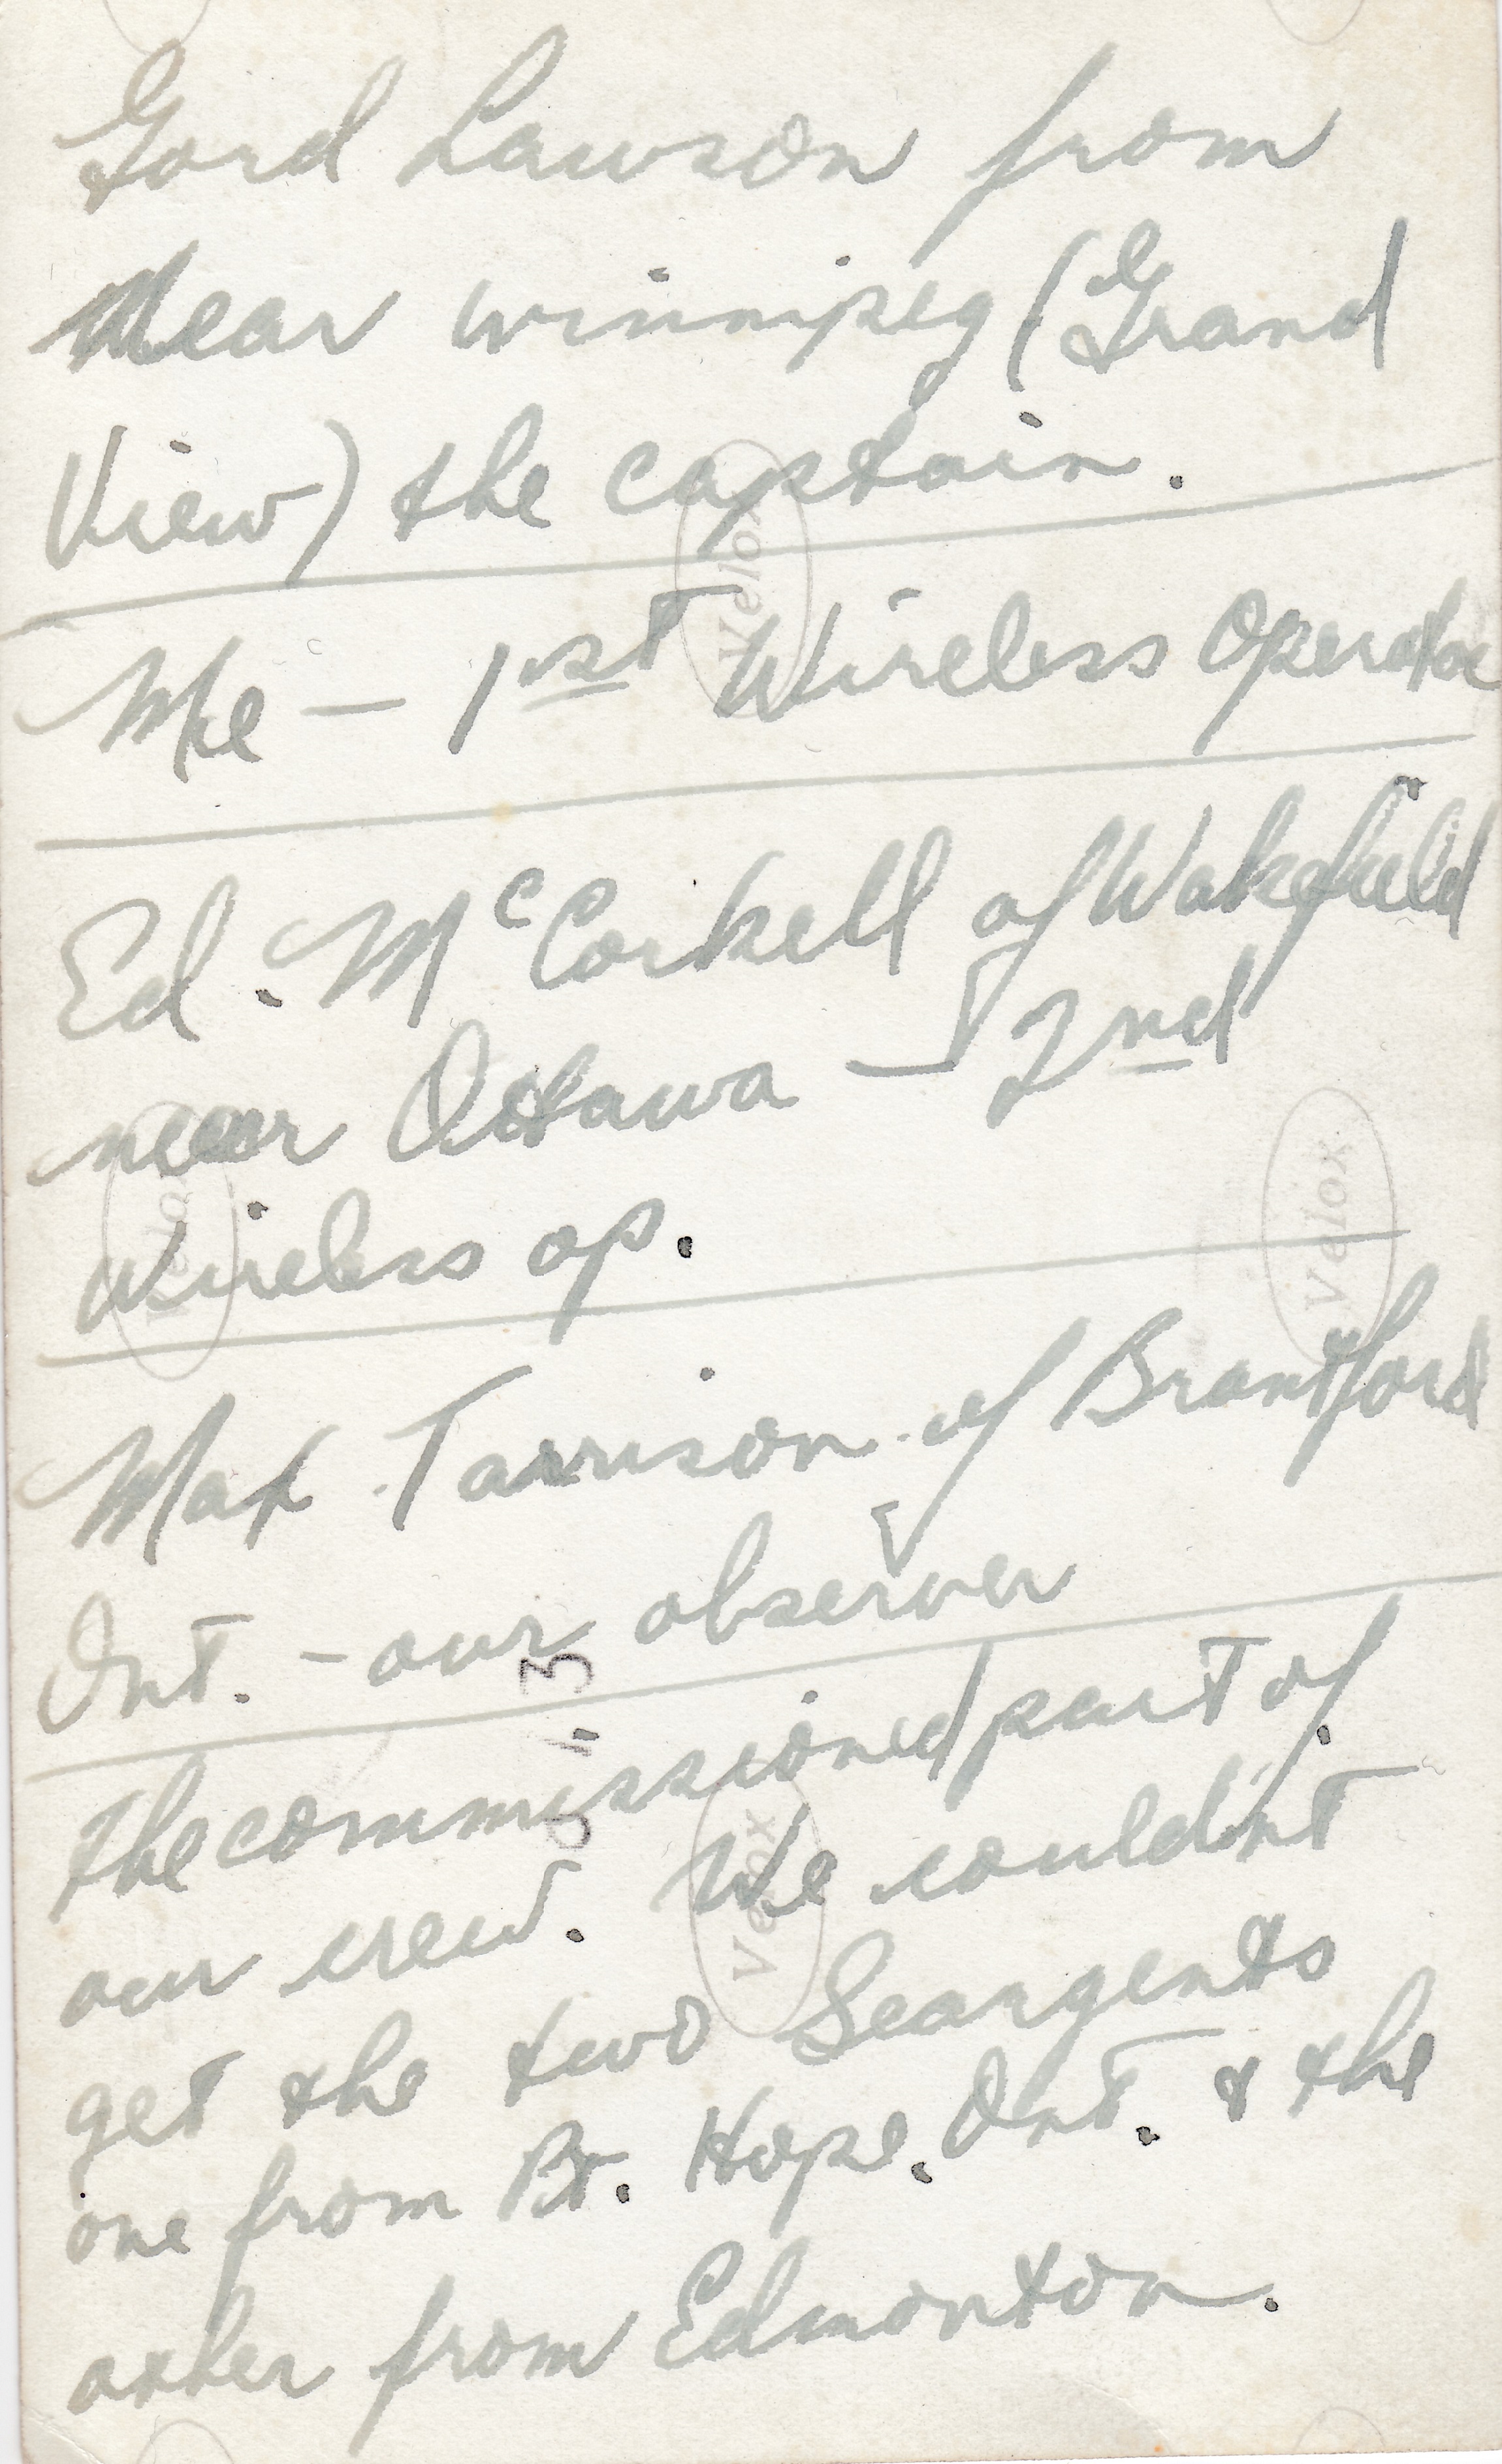 Gord Lawson from
Near Winnipeg (Grand
View) the captain.
Me — 1st Wireless Operator
Ed. McCorkell of Wakefield
near Ottawa — 2nd
Wireless op.
Max Tarrison of Brantford
Ont. - our observer
The commissioned part of
our crew. We couldn't
get the two Seargents
one from Pt. Hope, Ont. & the
other from Edmonton.
Velox
Velox
Velox
Velox